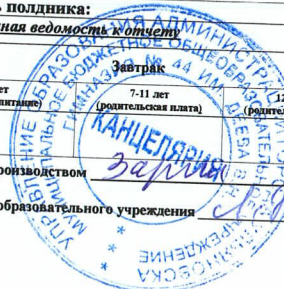 ь полдника:
ная ведомость к отчету
Завтрак
ет
питание)
7-11 лет
(родительская плата)
12
(родител
производством
образовательного учреждения
УПРАВЛЕНИЕ ОБРАЗОВАНИЯ АДМИНИСТРАЦИИ ГОРОДА УЛЬЯНОВСКА
МУНИЦИПАЛЬНОЕ БЮДЖЕТНОЕ ОБЩЕОБРАЗОВАТЕЛЬНОЕ УЧРЕЖДЕНИЕ
ГИМНАЗИЯ № 44 ИМ. ДЕЕВА В.Н.
КАНЦЕЛЯРИЯ